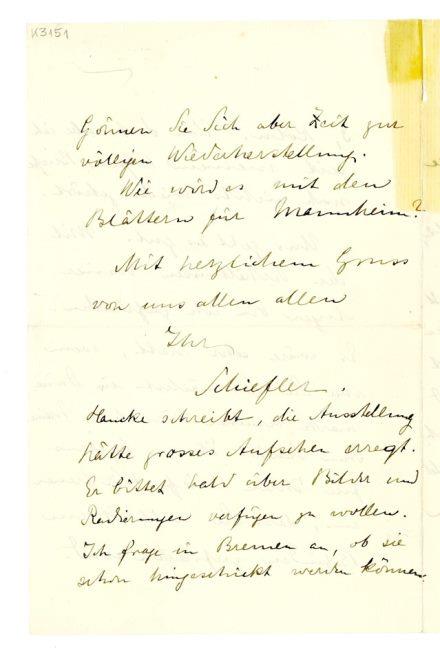 K3151
Gönnen Sie Sich aber Zeit zur
völligen Wiederherstellung.
Wie wird es mit den
Blättern für Mannheim?
Mit herzlichem Gruss
von uns allen allen
Ihr
Schiefler.
Hancke schreibt, die Ausstellung
hätte grosses Aufsehen erregt.
Er bittet bald über Bilder und
Radierungen verfügen zu wollen.
Ich frage in Bremen an, ob sie
schon hingeschickt werden können.